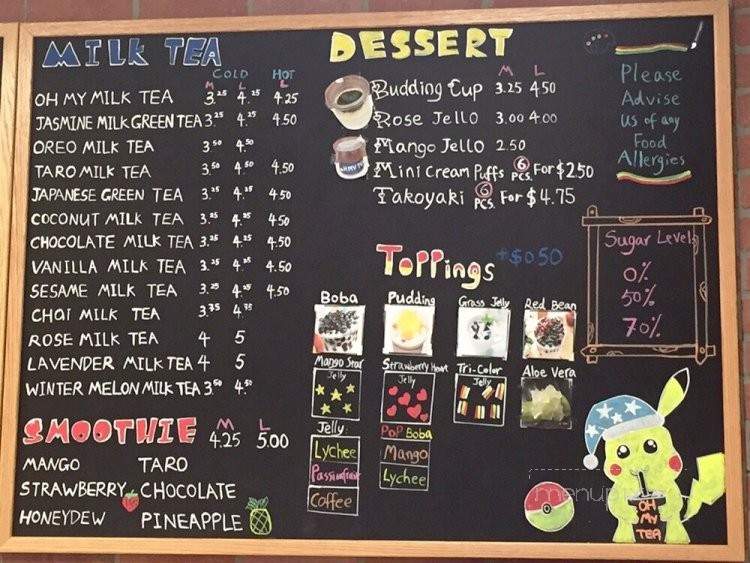 MILK TEA
COLD HOT
M L L
OH MY MILK TEA 3.25 4.25 4.25
JASMINE MILK GREEN TEA 3.25 4.25 4.50
OREO MILK TEA 3.50 4.50
TARO MILK TEA 3.50 4.50 4.50
JAPANESE GREEN TEA 3.25 4.25 4.50
COCONUT MILK TEA 3.25 4.25 4.50
CHOCOLATE MILK TEA 3.25 4.25 4.50
VANILLA MILK TEA 3.25 4.25 4.50
SESAME MILK TEA 3.25 4.25 4.50
CHAI MILK TEA 3.75 4.75
ROSE MILK TEA 4 5
LAVENDER MILK TEA 4 5
WINTER MELON MILK TEA 3.50 4.50
SMOOTHIE M 4.25 L 5.00
MANGO TARO
STRAWBERRY CHOCOLATE
HONEYDEW PINEAPPLE
DESSERT
M L
Pudding Cup 3.25 4.50
Rose Jello 3.00 4.00
Mango Jello 2.50
Mini Cream Puffs 6 PCS. For $2.50
Takoyaki 6 PCS. For $4.75
Toppings +$0.50
Boba Pudding Grass Jelly Red Bean
Mango Star Strawberry Heart Tri-Color Aloe Vera
Jelly Jelly Jelly
Jelly: POP Boba
Lychee Mango
Passionfruit Lychee
Coffee
Please
Advise
us of any
Food
Allergies
Sugar Levels
0%
50%
70%
OH
MY
TEA